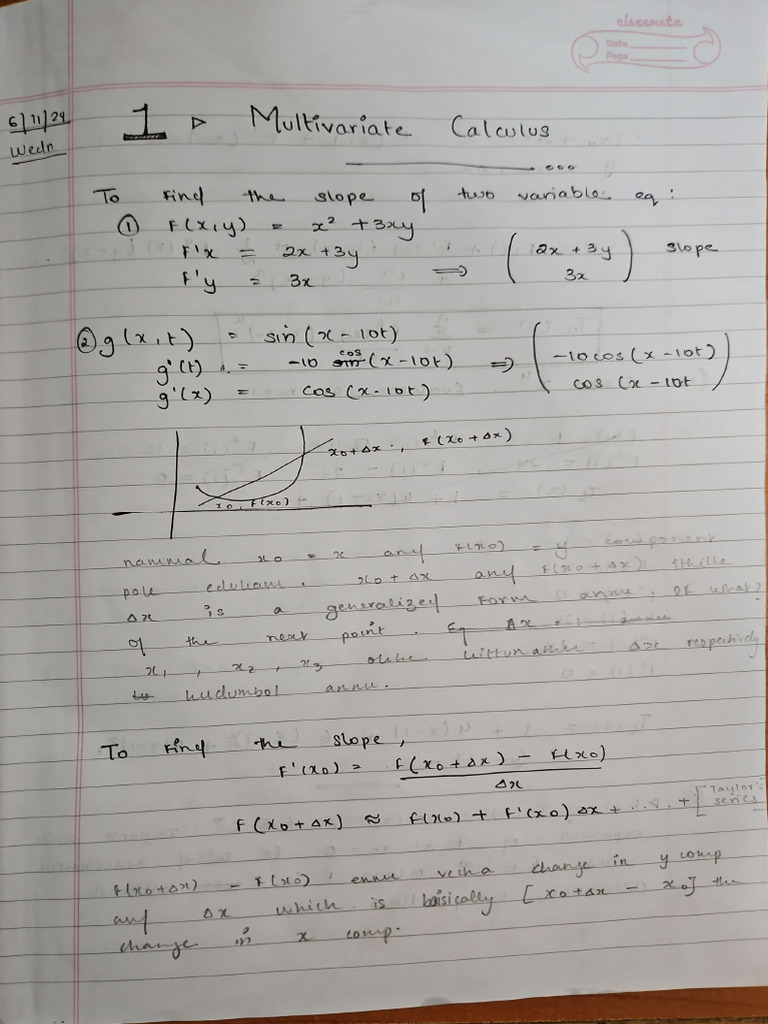 classmate
Date
Page
6/11/24
Wedn
1 ▷ Multivariate Calculus
To Find the slope of two variable eq:
① F(x,y) = x² + 3xy
F'x = 2x + 3y
F'y = 3x
⟹ (2x + 3y
3x) slope
② g(x,t) = sin(x - 10t)
g'(t) = -10 cos(x - 10t) ⟹ (-10 cos(x - 10t)
g'(x) = cos(x - 10t) cos(x - 10t)
x0 + Δx, F(x0 + Δx)
x0, F(x0)
nammal x0 = x and F(x0) = y component
pole edukam. x0 + Δx and F(x0 + Δx) ile
Δx is a generalized form annu, of what?
of the next point. Eg Δx = 1
x1, x2, x3 okke kittunathe Δx respectively
kudumbol annu.
To Find the slope,
F'(x0) = F(x0 + Δx) - F(x0)
Δx
F(x0 + Δx) ≈ F(x0) + F'(x0) Δx + ..... + [Taylor series
F(x0 + Δx) - F(x0) ennu vecha change in y comp
and Δx which is baisically [x0 + Δx - x0] the
change in x comp.